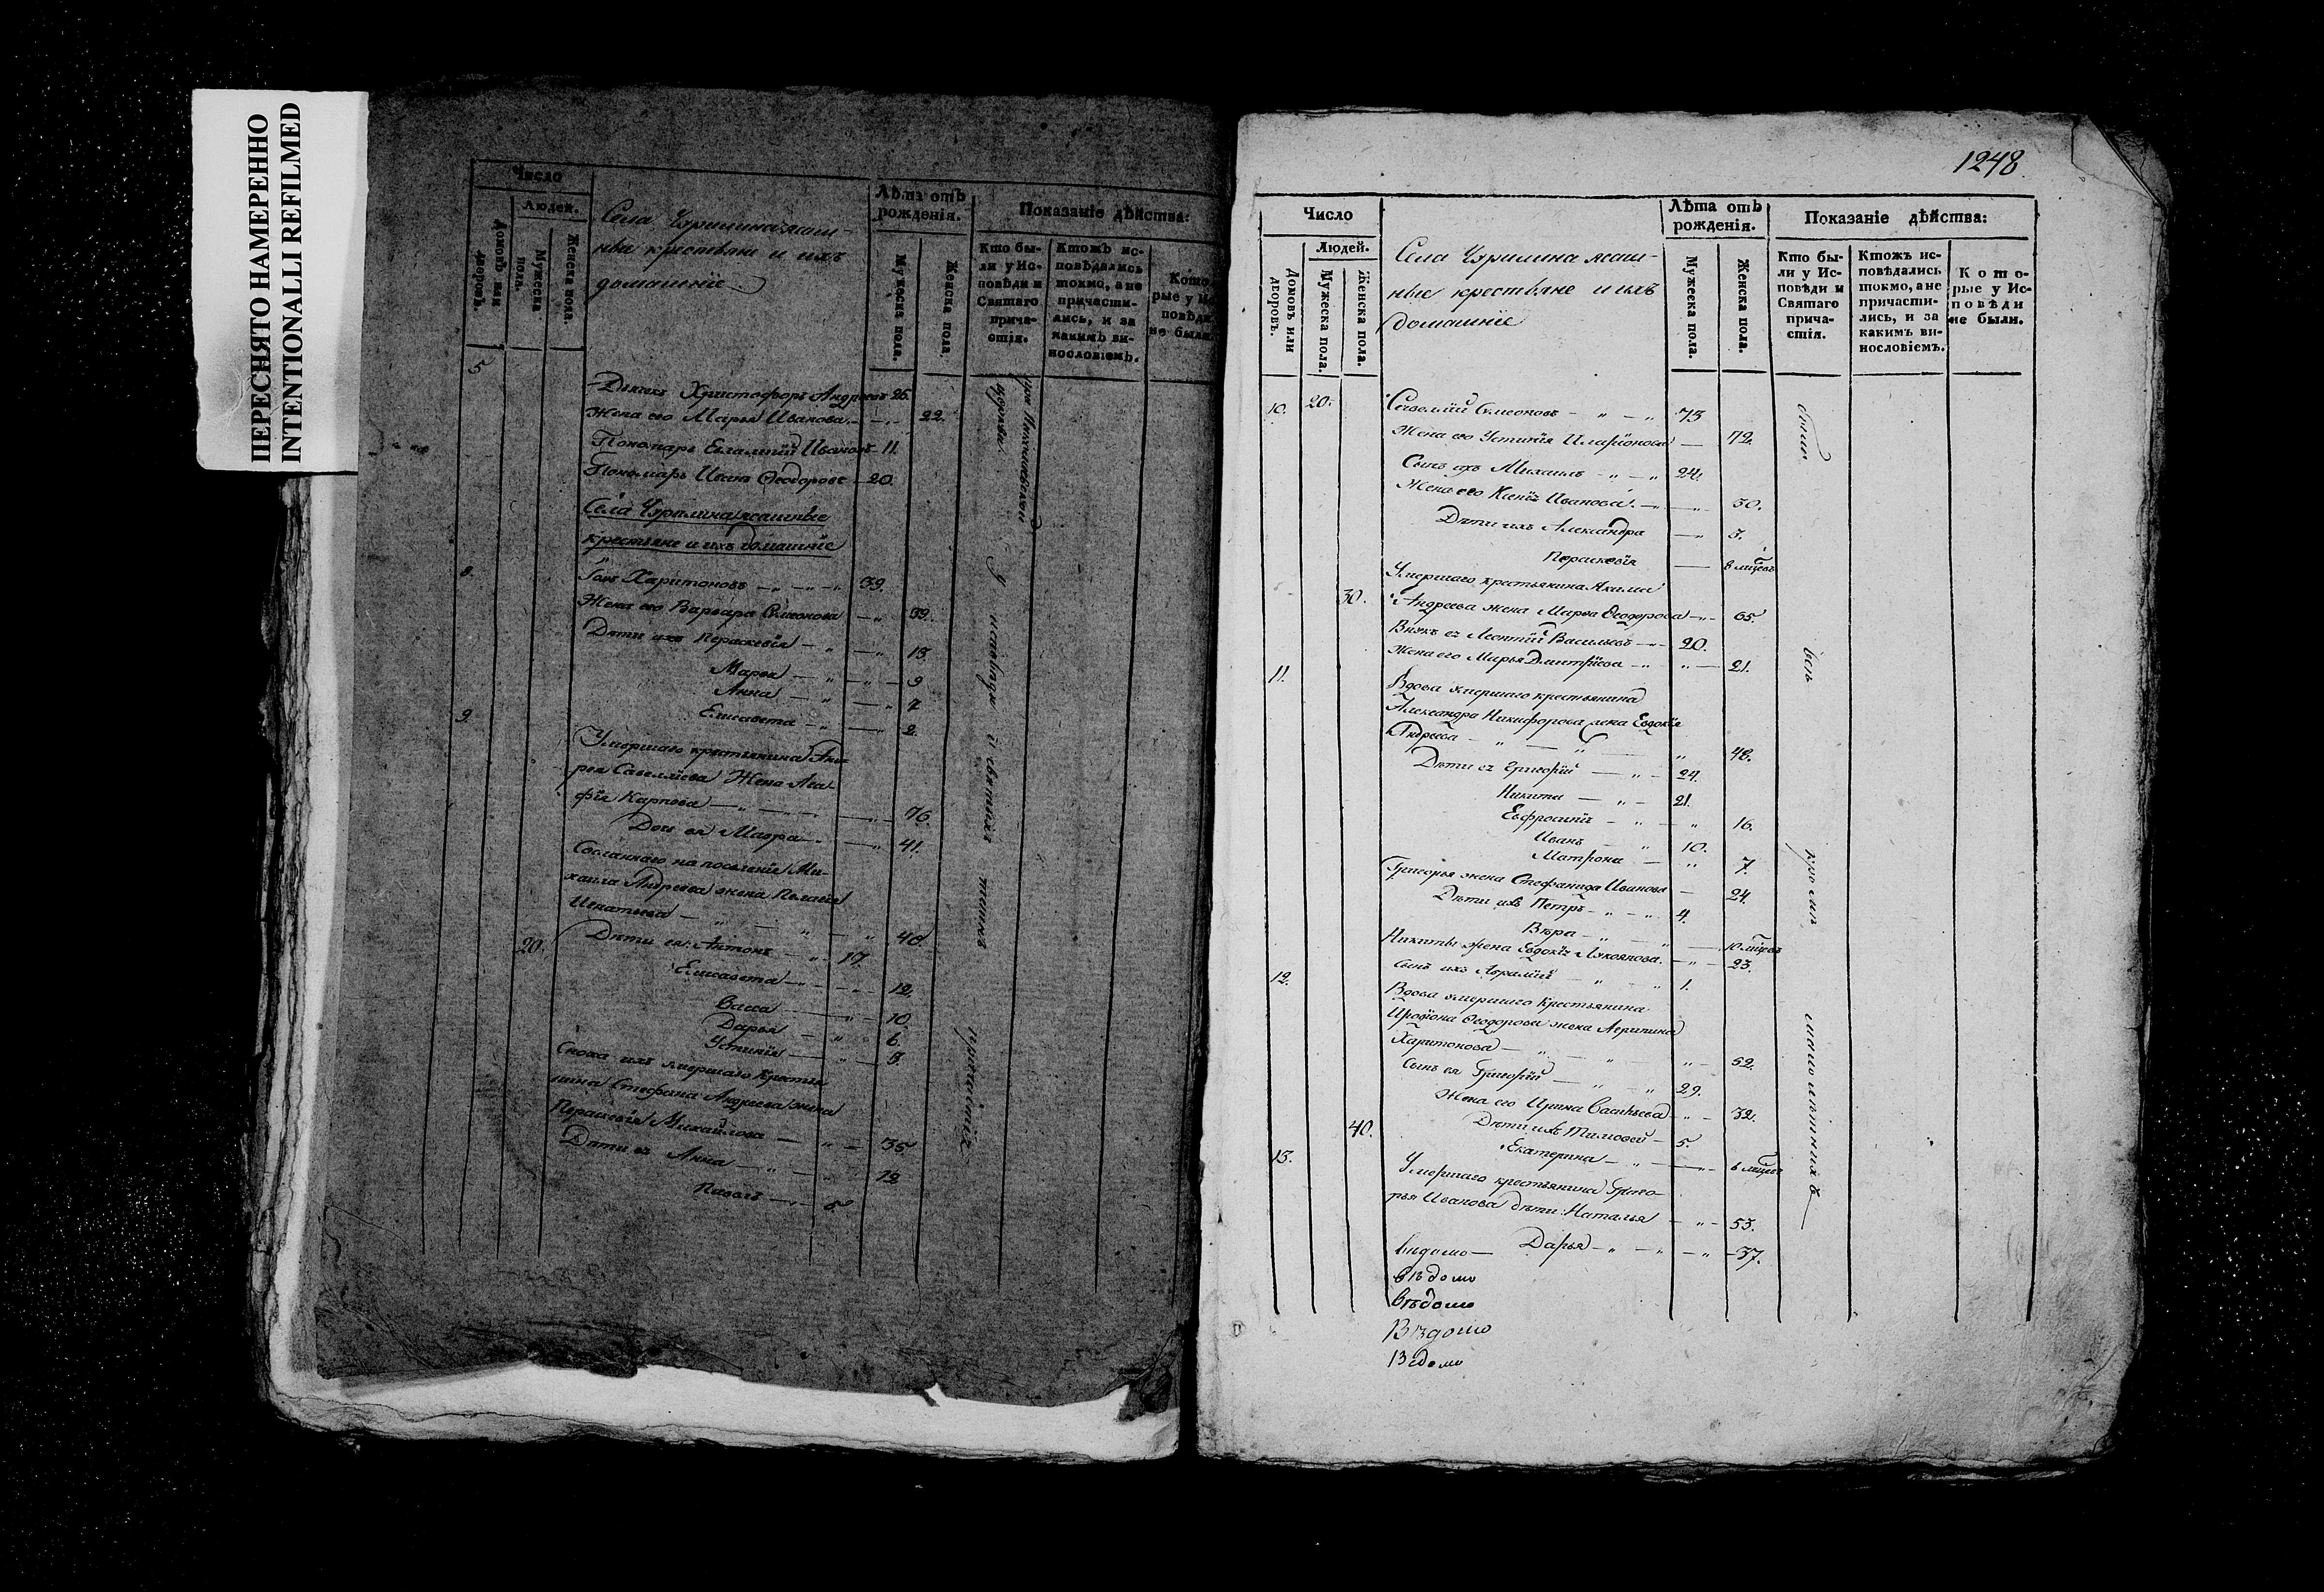 ПЕРЕСНЯТО НАМЕРЕННО
INTENTIONALLI REFILMED
Число
Людей.
Домовъ или дворовъ.
Мужеска пола.
Женска пола.
Села Чурилина ясаш-
ные крестьяне и ихъ
домашніе
Лѣта отъ
рожденія.
Мужеска пола.
Женска пола.
Показаніе дѣйства:
Кто бы-
ли у Ис-
повѣди и
Святаго
прича-
стія.
Ктожъ ис-
повѣдались
токмо, а не
причасти-
лись, и за
какимъ ви-
нословіемъ.
Кото
рые у Ис
повѣди
не были.
5
Дьячекъ Христофоръ Андреевъ 26.
Жена его Марья Иванова 22.
Пономарь Евлампій Ивановъ 11.
Пономарь Иванъ Ѳеодоровъ 20.
Села Чурилина ясашные
крестьяне и ихъ домашніе
8. Харитоновъ 39.
Жена его Варвара Симеонова 39.
Дѣти ихъ Параскевія 13.
Марья 9
Анна 7
Елисавета 2.
9. Умершаго крестьянина Анд-
рея Савельева Жена Ага-
фія Карпова 76.
Дочь ея Мавра 41.
Сосланнаго на поселеніе Ми-
хаила Андреева жена Пелагія
Игнатьева 40.
20. Дѣти ея: Антонъ 17.
Елисавета 12.
Васса 10.
Дарья 6.
Устинія 3.
Сноха ихъ умершаго крестья
нина Стефана Андреева жена
Параскевія Михайлова 35
Дѣти ея Анна 12
Павелъ 5
у исповѣди и святыхъ таинъ
1248
Число
Людей.
Домовъ или дворовъ.
Мужеска пола.
Женска пола.
Села Чурилина ясаш-
ные крестьяне и ихъ
домашніе
Лѣта отъ
рожденія.
Мужеска пола.
Женска пола.
Показаніе дѣйства:
Кто бы-
ли у Ис-
повѣди и
Святаго
прича-
стія.
Ктожъ ис-
повѣдались
токмо, а не
причасти-
лись, и за
какимъ ви-
нословіемъ.
Кото-
рые у Ис-
повѣди
не были.
10. 20. Симеоновъ 75
Жена его Устинія Иларіонова 72.
Сынъ ихъ Михаилъ 24.
Жена его Ксенія Иванова 30.
Дѣти ихъ Александра 3.
Параскевія 8 мцевъ
Умершаго крестьянина Акима
30. Андреева жена Марья Ѳеодорова 65.
Внукъ ея Леонтій Васильевъ 20.
Жена его Марья Дмитріева 21.
11. Вдова умершаго крестьянина
Александра Никифорова жена Евдокія
Андреева 48.
Дѣти ея Григорій 24.
Никита 21.
Евфросинія 16.
Иванъ 10.
Матрона 7.
Григорья жена Стефанида Иванова 24.
Дѣти ихъ Петръ 4.
Вѣра 10 мцевъ
Никиты жена Евдокія Лукоянова 23.
Сынъ ихъ 1.
12. Вдова умершаго крестьянина
Иродіона Ѳеодорова жена Агрипина
Харитонова 52.
Сынъ ея Григорій 29.
Жена его Ирина Савельева 32.
40. Дѣти ихъ Тимоѳей 5
Екатерина 6 мцевъ
13. Умершаго крестьянина Григо-
рья Иванова дѣти: Наталья 53.
Дарья 37.
были
всѣ
кромѣ
малолѣтнихъ
вѣдомо
вѣдомо
вѣдомо
Вѣдомо